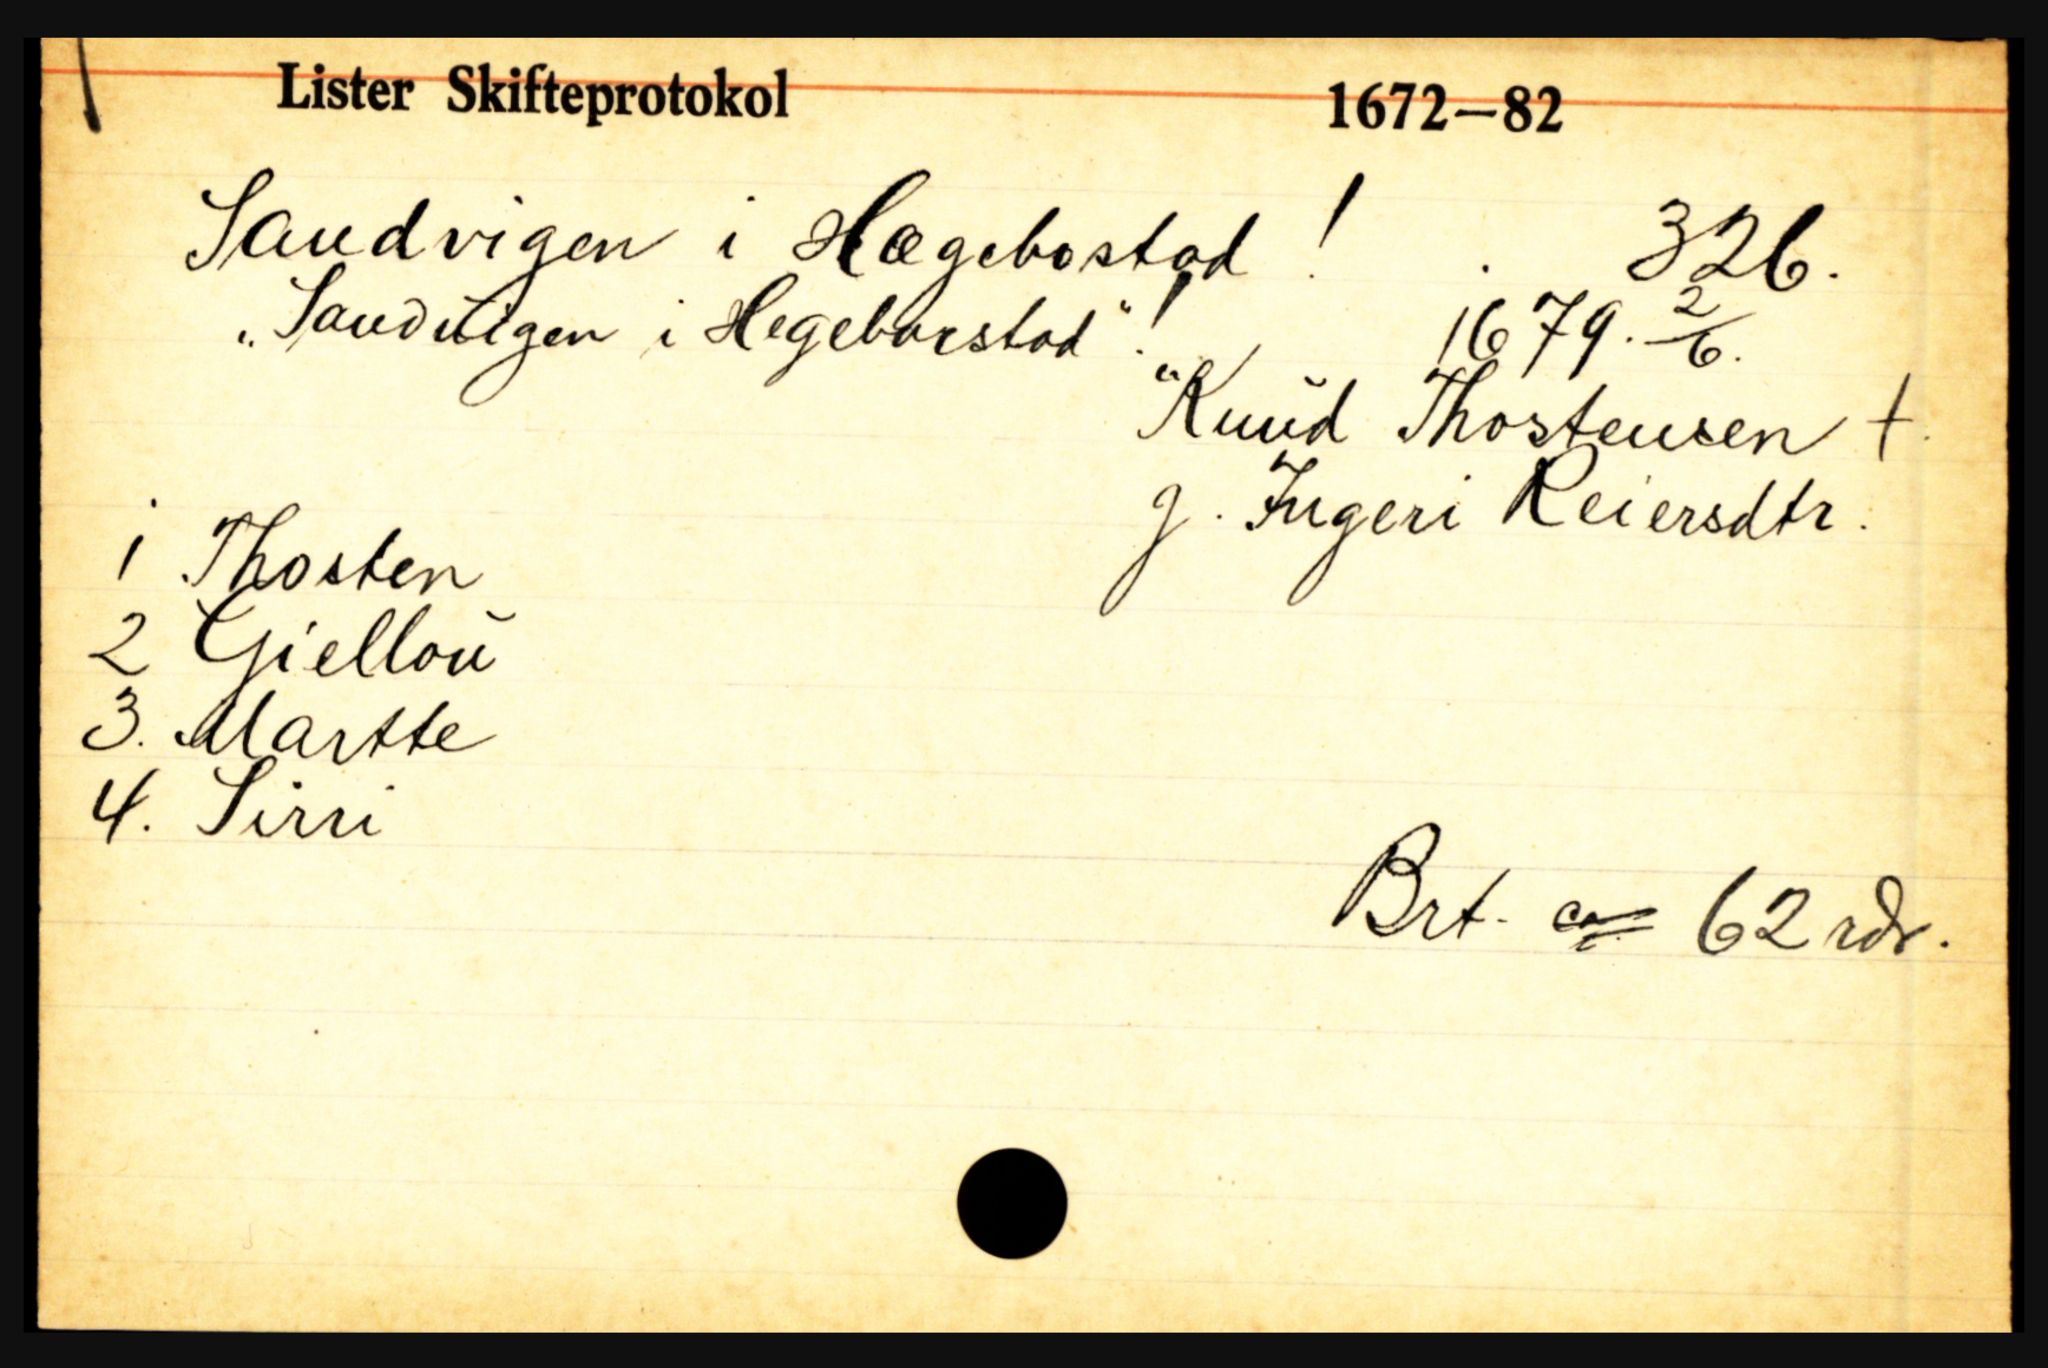 Lister Skifteprotokol 1672–82
Sandvigen i Hægebostad ! . 326.
„Sandŭigen i Hegeborstad" ! 1679. 2/6.
"Knŭd Thostensen †.
g. Ingeri Reiersdtr.
1 Thosten
2 Gielloŭ
3. Martte
4. Sirri
Brt. ca 62 rdr.